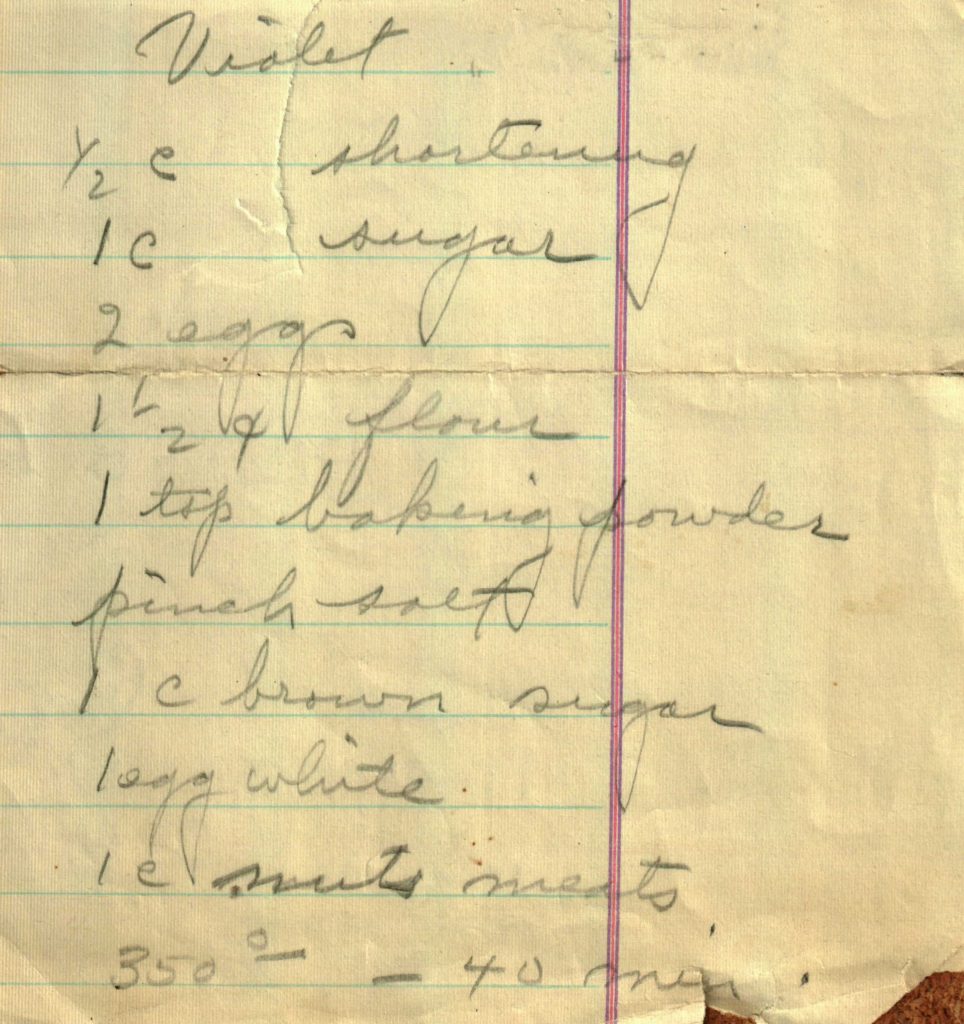 Violet
1/2 c shortening
1 c sugar
2 eggs
1 1/2 c flour
1 tsp baking powder
pinch salt
1 c brown sugar
1 egg white
1 c nuts meats
350° - 40 min.